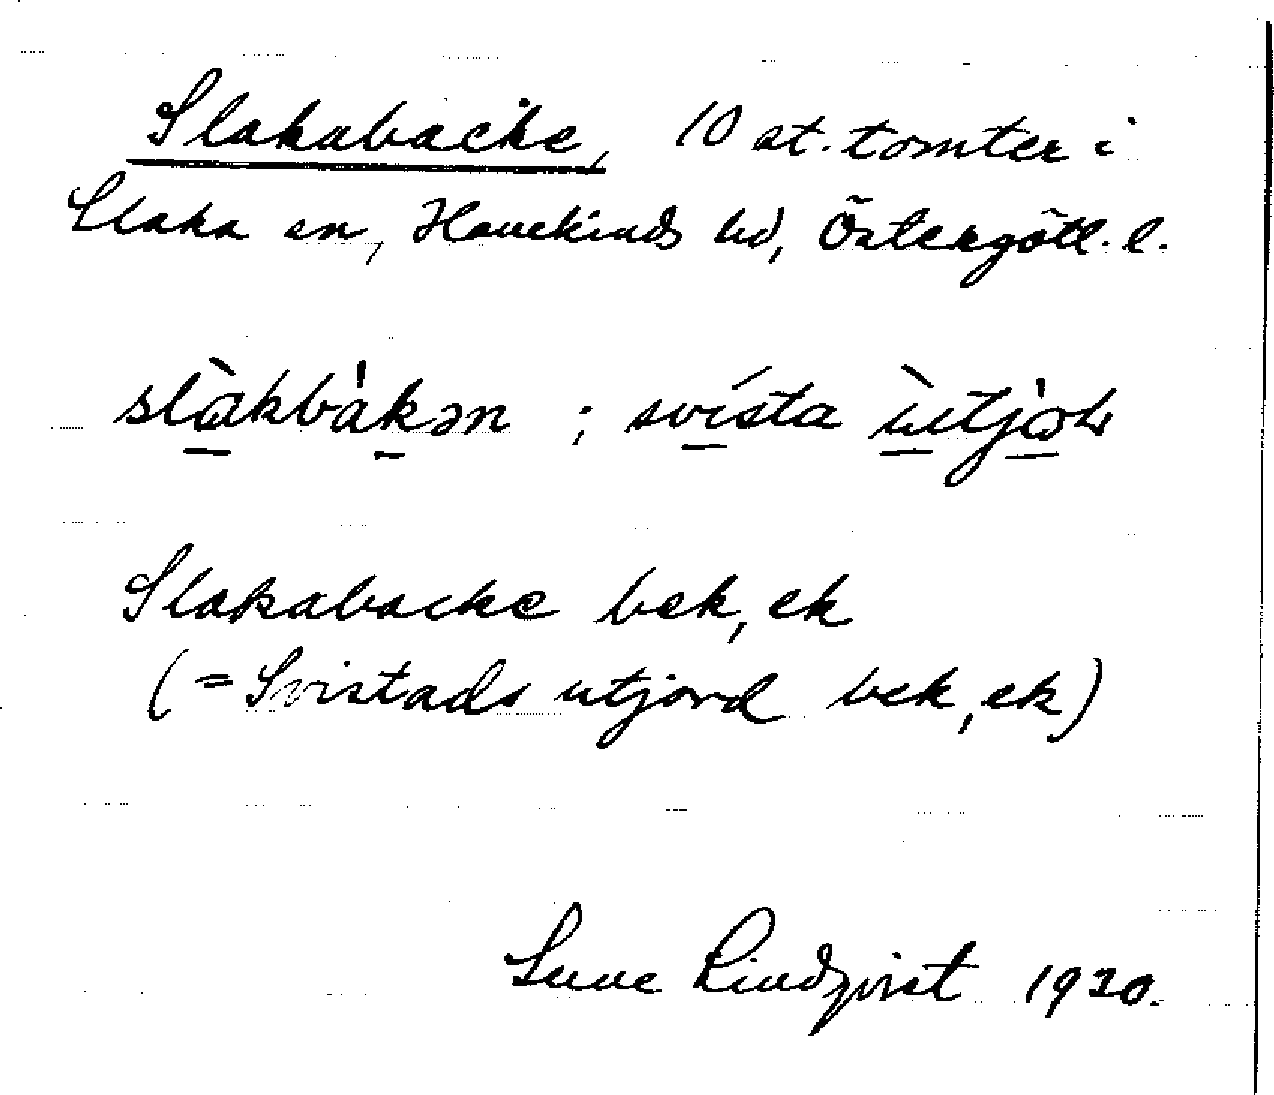 Slakabacke, 10 st. tomter i
Slaka sn, Hanekinds hd, Östergötl. l.
slàkbàkən ; svísta ùtjòḷ
Slakabacke bek, ek
(= Svistads utjord bek, ek)
Sune Lindqvist 1920.